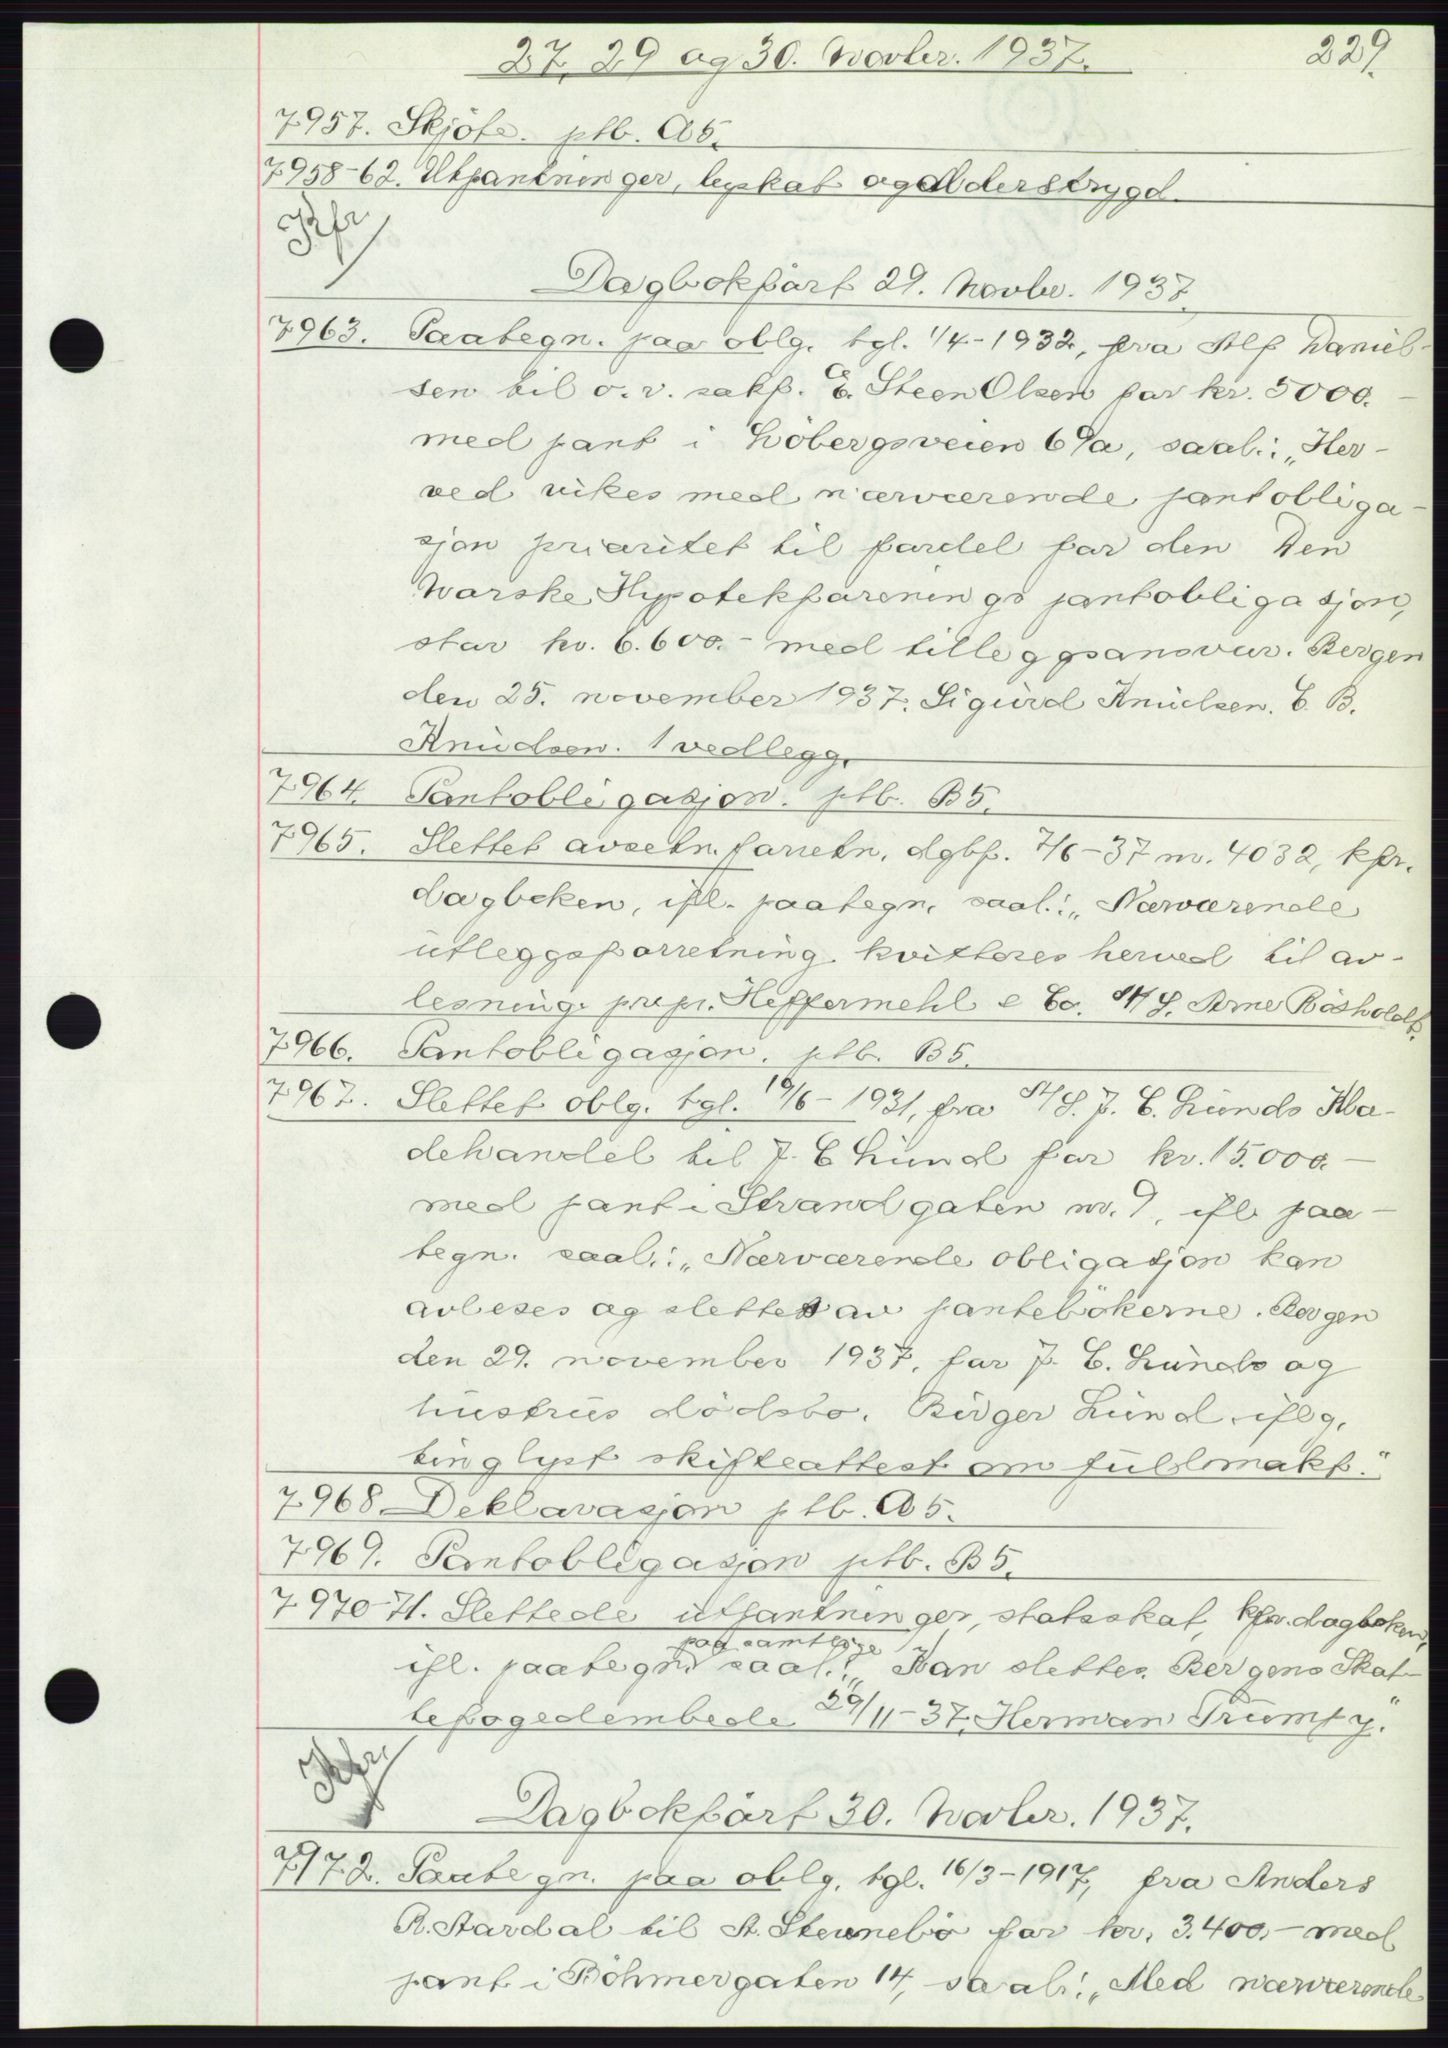 27, 29 og 30. Novbr. 1937.
229.
7957. Skjöte. ptb. A5.
7958-62. Utpantninger, byskat og Alderstrygd.
Kfr
Dagbokfört 29. Novbr. 1937.
7963. Paategn. paa oblg. tgl. 1/4-1932, fra Alf Daniel-
sen til o.r. sakf. E. Steen Olsen for kr. 5000.-
med pant i Löbergsveien 69a, saal.: „Her-
ved vikes med nærværende pantobliga-
sjon prioritet til fordel for den Den
Norske Hypotekforenings pantobligasjon,
stor kr. 6.600.- med tilleggsansvar. Bergen
den 25. november 1937. Sigurd Knudsen. E. B.
Knudsen. 1 vedlegg.
7964. Pantobligasjon. ptb. B5.
7965. Slettet avsetn. forretn. dgbf. 7/6-37 nr. 4032, kfr.
dagboken, ifl. paategn. saal.: „Nærværende
utleggsforretning kvitteres herved til av-
lesning. pr.pr. Heffermehl & Co. A/S. Arne Rösholdt.
7966. Pantobligasjon. ptb. B5.
7967. Slettet oblg. tgl. 19/6-1931, fra A/S. J. C. Lunds Klæ-
dehandel til J. C Lund for kr. 15.000.-
med pant i Strandgaten nr. 9, ifl. paa-
tegn. saal.: „Nærværende obligasjon kan
avleses og slettes av pantebökerne. Bergen
den 29. november 1937, for J. C. Lunds og
hustrus dödsbo. Birger Lund iflg.
tinglyst skifteattest om fullmakt."
7968. Deklarasjon ptb. A5.
7969. Pantobligasjon ptb. B5.
7970-71. Slettede utpantninger, statsskat, kfr. dagboken,
paa samtlige
ifl. paategn. saal.: „Kan slettes. Bergens Skat-
tefogedembede 29/11-37. Herman Trumpy."
Kfr
Dagbokfört 30. Novbr. 1937.
7972. Paategn. paa oblg. tgl. 16/3-1917, fra Anders
R. Stardal til A. Steinebö for kr. 3.400.- med
pant i Böhmergaten 14, saal.: „Med nærværende